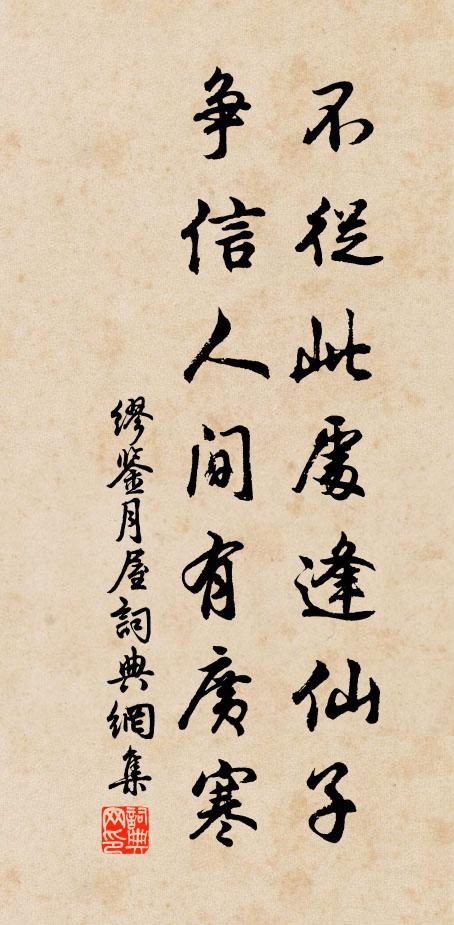 不從此處逢仙子
爭信人間有廣寒
繆鑒月屋詞典網集
詞典网印